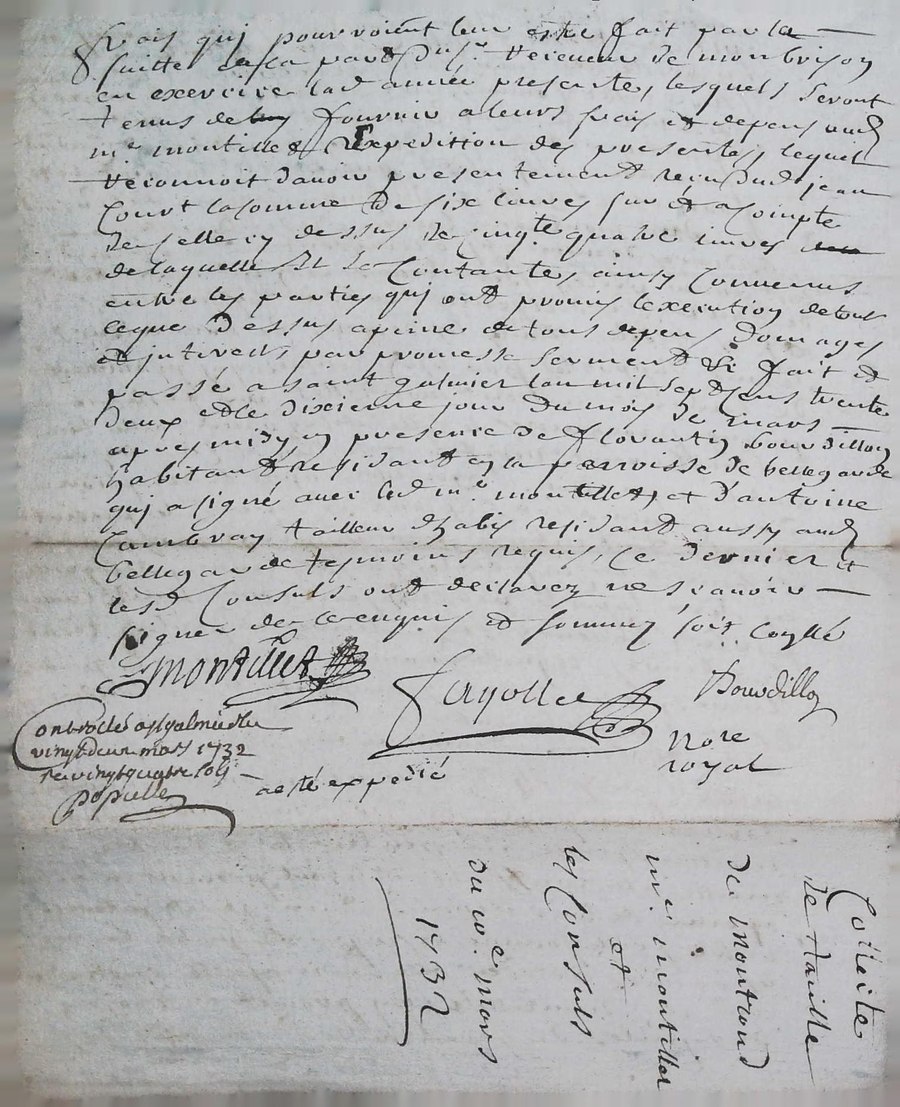 frais quj pourroient leur estre fait par la
suitte de la part du sr. Receveur de monbrison
en exercice lad année presente, lesquels seront
tenus de fournir a leurs frais et depens aud
mre montillet Expedition des presentes, lequel
Reconnoit davoir presentement reçu dud jean
Court la somme de six livres sur et a compte
de selle cy dessus de cinqte quatre livres
de laquelle Contantes ainsy Convenus
entre les parties quj ont promis lexecution de tout
ceque dessus apeine de tous depens domages
et jnterests par promesse serment &c fait et
passé a saint galmier lan mil sept sens trente
deux et le dixieme jour du mois de mars
apres midy en presence de florantin bourdillon
habitant residant en la parroisse de bellegarde
quj a signé avec led mre montillet, et d'antoine
Cambray tailleur dhabis residant aussy aud
bellegarde tesmoins requis, Ce dernier et
lesd Consuls ont declarez ne scavoir
signer de ce enquis et sommez soit Coyllé
montillet
fayolle
Bourdillon
nore
royal
Controllé a st galmier le
vingt deux mars 1732
R vingt quatre sols
a esté expedié
Colleite
de taille
de montrond
me. montillet
et
les Consuls
du xe. mars
1732